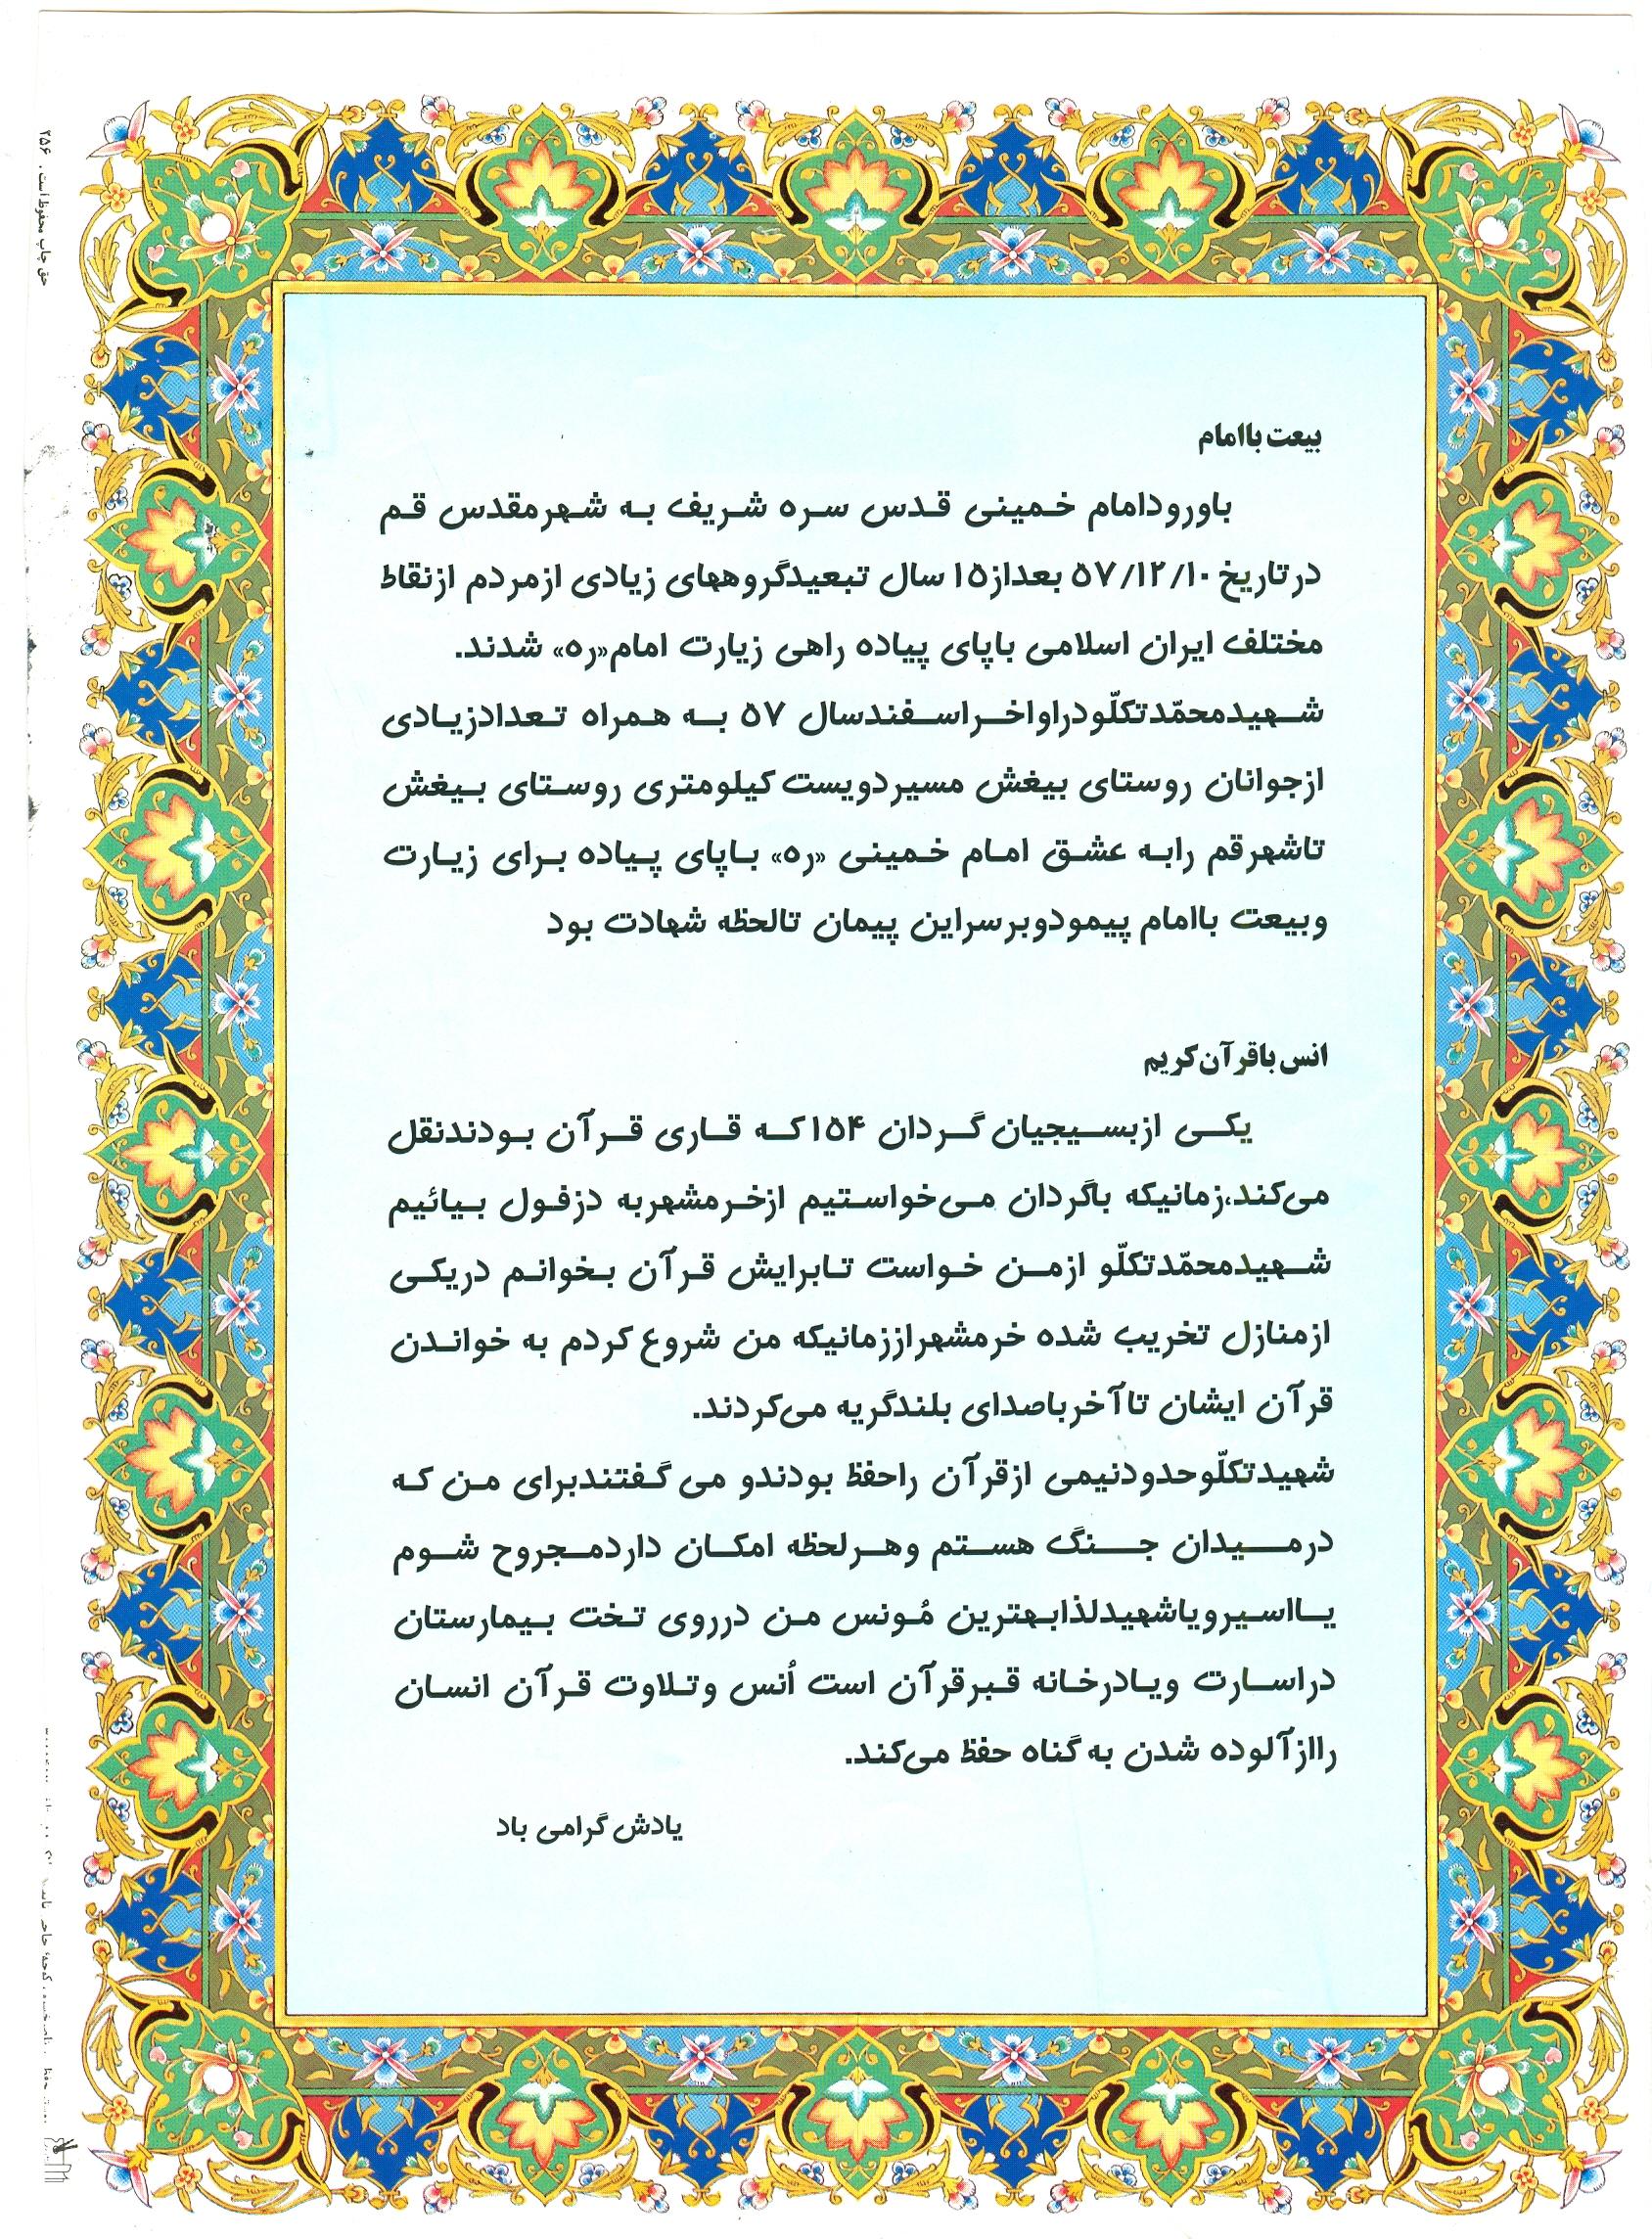 بیعت باامام
باورودامام خمینی قدس سره شریف به شهرمقدس قم
درتاریخ ۵۷/۱۲/۱۰ بعداز۱۵ سال تبعیدگروههای زیادی ازمردم ازنقاط
مختلف ایران اسلامی باپای پیاده راهی زیارت امام«ره» شدند.
شهیدمحمّدتکلّودراواخراسفندسال ۵۷ به همراه تعدادزیادی
ازجوانان روستای بیغش مسیردویست کیلومتری روستای بیغش
تاشهرقم رابه عشق امام خمینی «ره» باپای پیاده برای زیارت
وبیعت باامام پیمودوبرسراین پیمان تالحظه شهادت بود
انس باقرآن کریم
یکی ازبسیجیان گردان ۱۵۴که قاری قرآن بودندنقل
می‌کند،زمانیکه باگردان می‌خواستیم ازخرمشهربه دزفول بیائیم
شهیدمحمّدتکلّو ازمن خواست تابرایش قرآن بخوانم دریکی
ازمنازل تخریب شده خرمشهراززمانیکه من شروع کردم به خواندن
قرآن ایشان تاآخرباصدای بلندگریه می‌کردند.
شهیدتکلّوحدودنیمی ازقرآن راحفظ بودندو می گفتندبرای من که
درمیدان جنگ هستم وهرلحظه امکان داردمجروح شوم
یااسیرویاشهیدلذابهترین مُونس من درروی تخت بیمارستان
دراسارت ویادرخانه قبرقرآن است اُنس وتلاوت قرآن انسان
راازآلوده شدن به گناه حفظ می‌کند.
یادش گرامی باد
حق چاپ محفوظ است . ۲۵۶